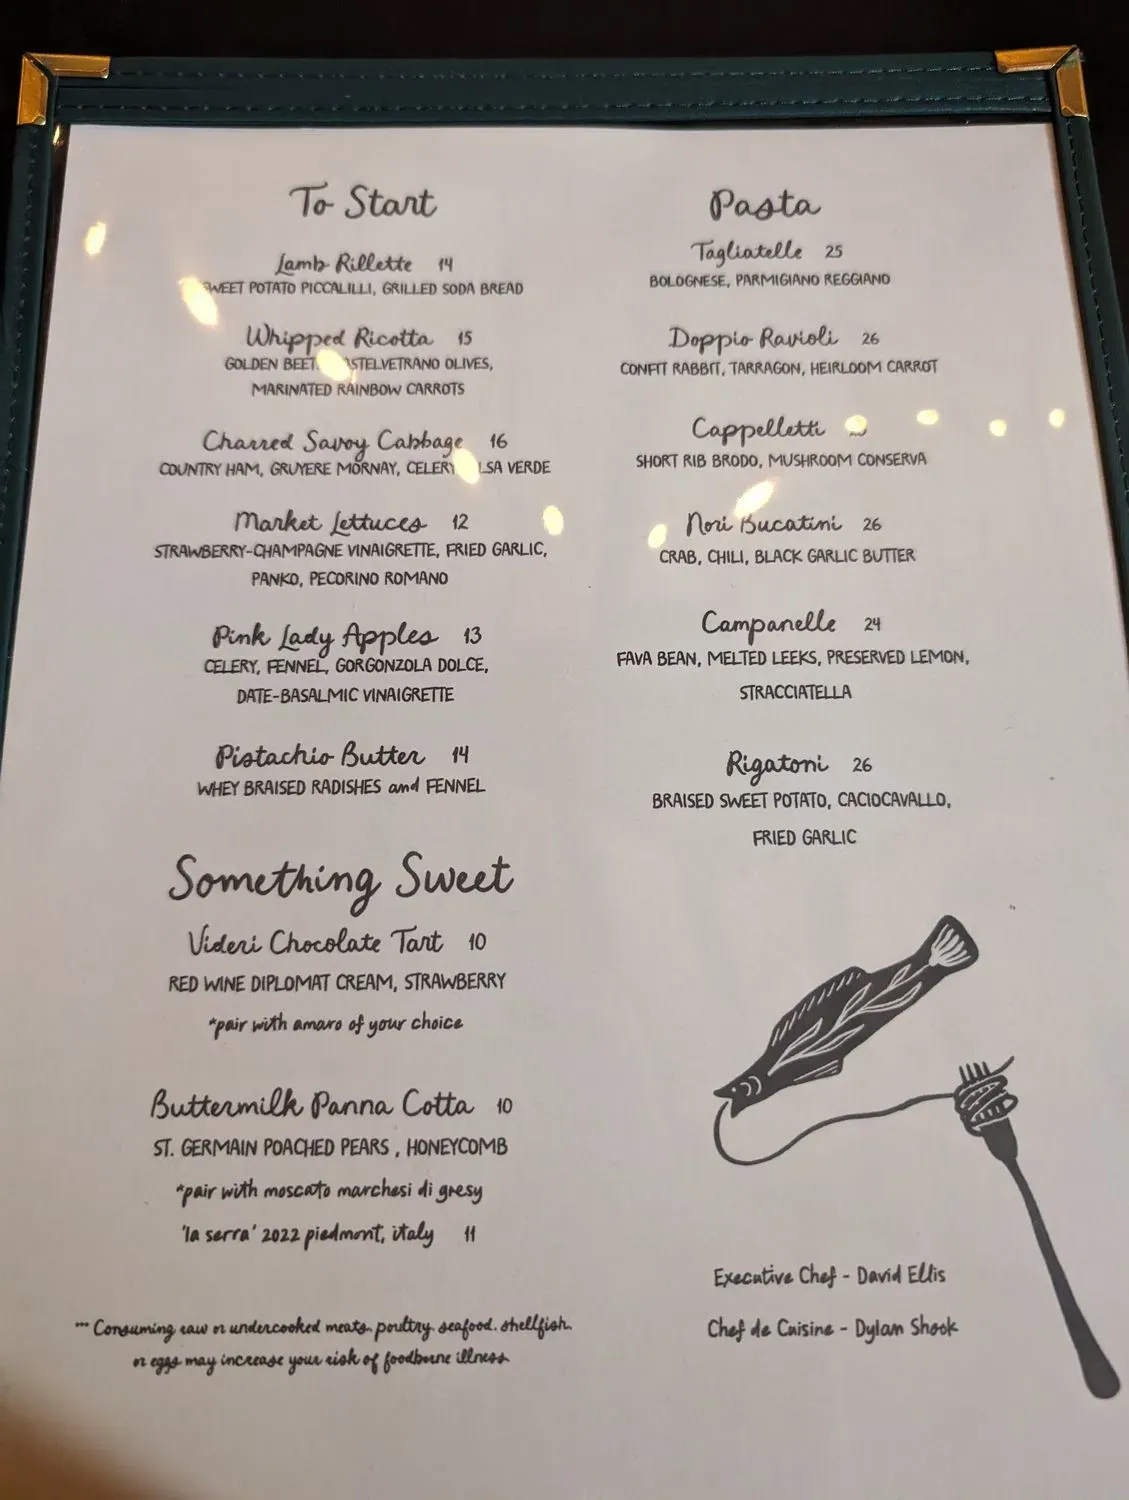 To Start
Lamb Rillette 14
SWEET POTATO PICCALILLI, GRILLED SODA BREAD
Whipped Ricotta 15
GOLDEN BEET, CASTELVETRANO OLIVES,
MARINATED RAINBOW CARROTS
Charred Savoy Cabbage 16
COUNTRY HAM, GRUYERE MORNAY, CELERY SALSA VERDE
Market Lettuces 12
STRAWBERRY-CHAMPAGNE VINAIGRETTE, FRIED GARLIC,
PANKO, PECORINO ROMANO
Pink Lady Apples 13
CELERY, FENNEL, GORGONZOLA DOLCE,
DATE-BASALMIC VINAIGRETTE
Pistachio Butter 14
WHEY BRAISED RADISHES and FENNEL
Something Sweet
Videri Chocolate Tart 10
RED WINE DIPLOMAT CREAM, STRAWBERRY
*pair with amaro of your choice
Buttermilk Panna Cotta 10
ST. GERMAIN POACHED PEARS , HONEYCOMB
*pair with moscato marchesi di gresy
'la serra' 2022 piedmont, italy 11
*** Consuming raw or undercooked meats. poultry. seafood. shellfish.
or eggs may increase your risk of foodborne illness.
Pasta
Tagliatelle 25
BOLOGNESE, PARMIGIANO REGGIANO
Doppio Ravioli 26
CONFIT RABBIT, TARRAGON, HEIRLOOM CARROT
Cappelletti
SHORT RIB BRODO, MUSHROOM CONSERVA
Nori Bucatini 26
CRAB, CHILI, BLACK GARLIC BUTTER
Campanelle 24
FAVA BEAN, MELTED LEEKS, PRESERVED LEMON,
STRACCIATELLA
Rigatoni 26
BRAISED SWEET POTATO, CACIOCAVALLO,
FRIED GARLIC
Executive Chef - David Ellis
Chef de Cuisine - Dylan Shook